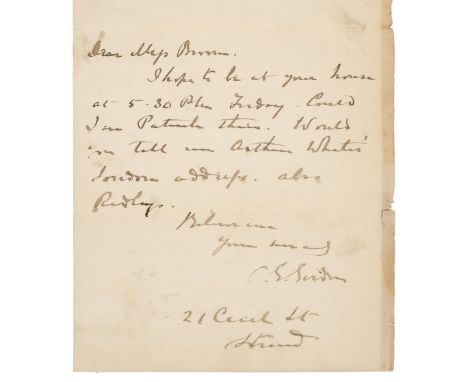 Dear Miss Brown.
I hope to be at your house
at 5.30 PM Friday. Could
I see Patrick there. Would
you tell me Arthur White's
London address. also
Ridleys.
Believe me
yours
C. G. Gordon
21 Cecil St
Strand